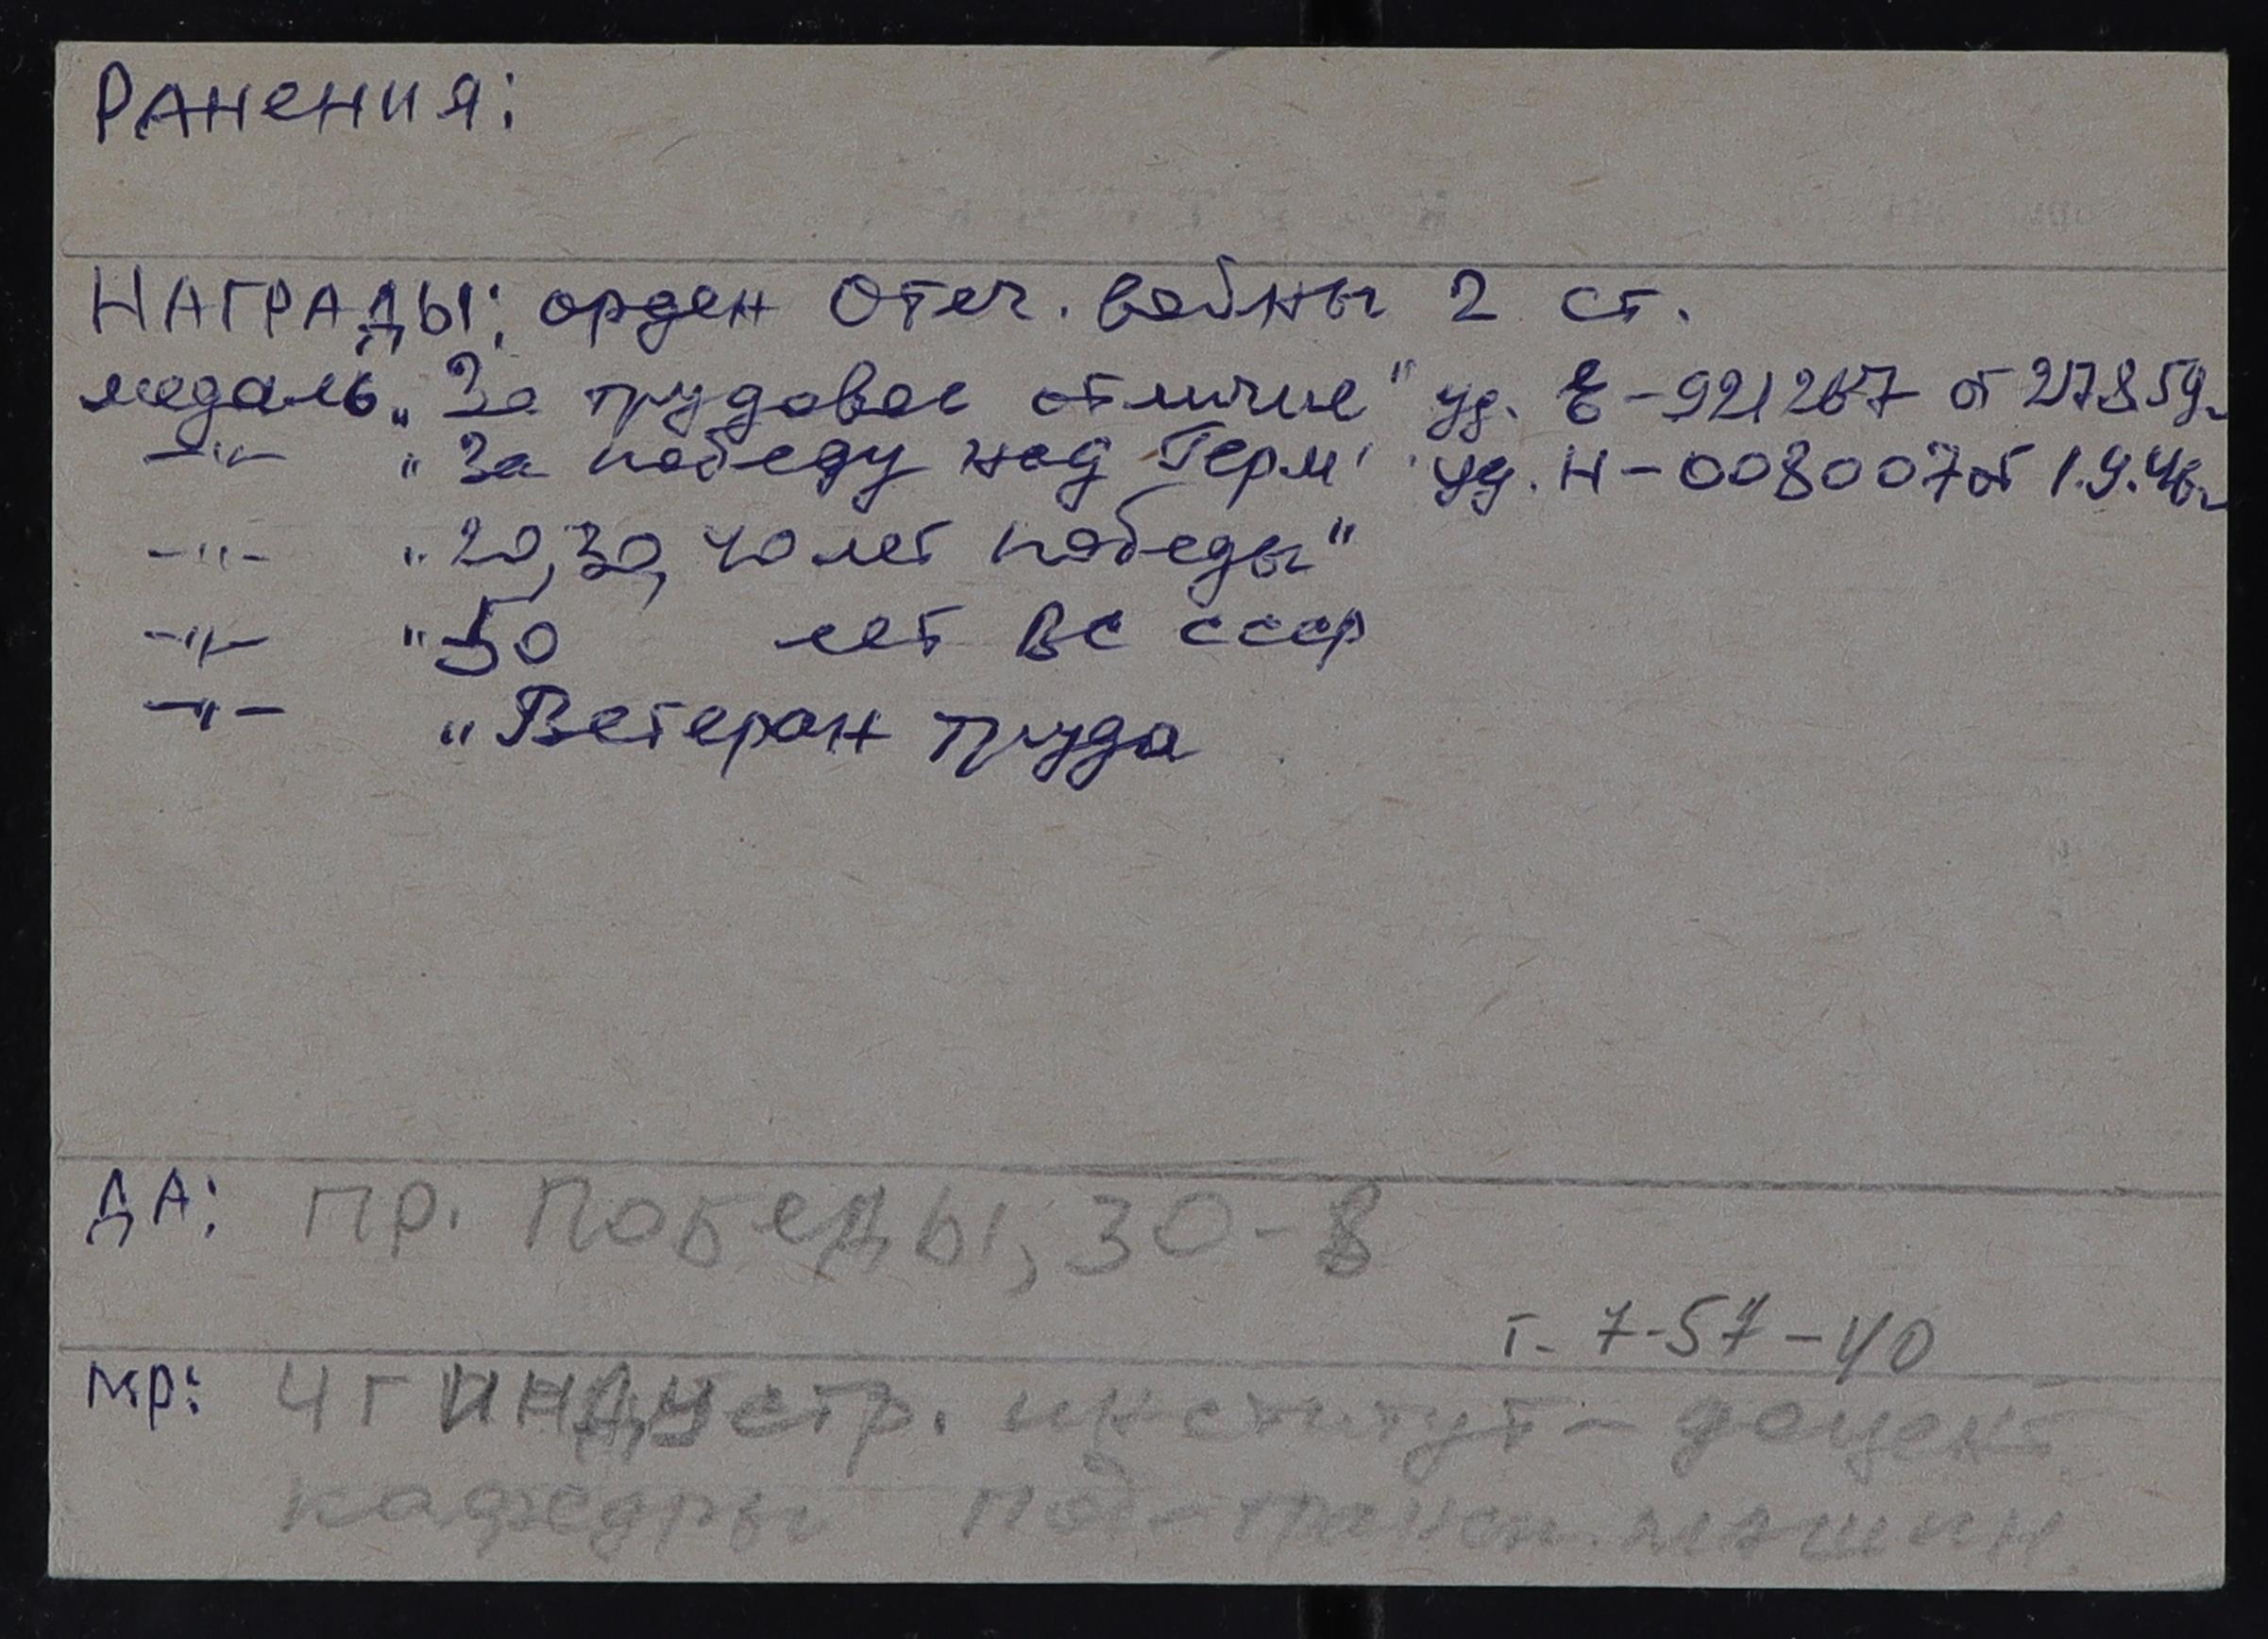 РАНЕНИЯ:
НАГРАДЫ: орден Отеч. войны 2 ст.
медаль „За трудовое отличие" уд. Е-921267 от 27.8.59г.
-"- „За победу над Герм" уд. Н-0080007 от 1.9.46г
-"- „20, 30, 40 лет победы"
-"- "50 лет ВС СССР
-"- „Ветеран труда
ДА: пр. Победы, 30-8
т. 7-57-40
МР: ЧГ ИНДУСТР. институт - доцент
кафедры под-трансп. машин.